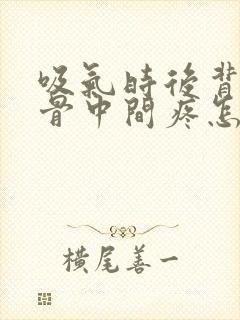 吸氣時後背
骨中間疼怎
橫尾善一